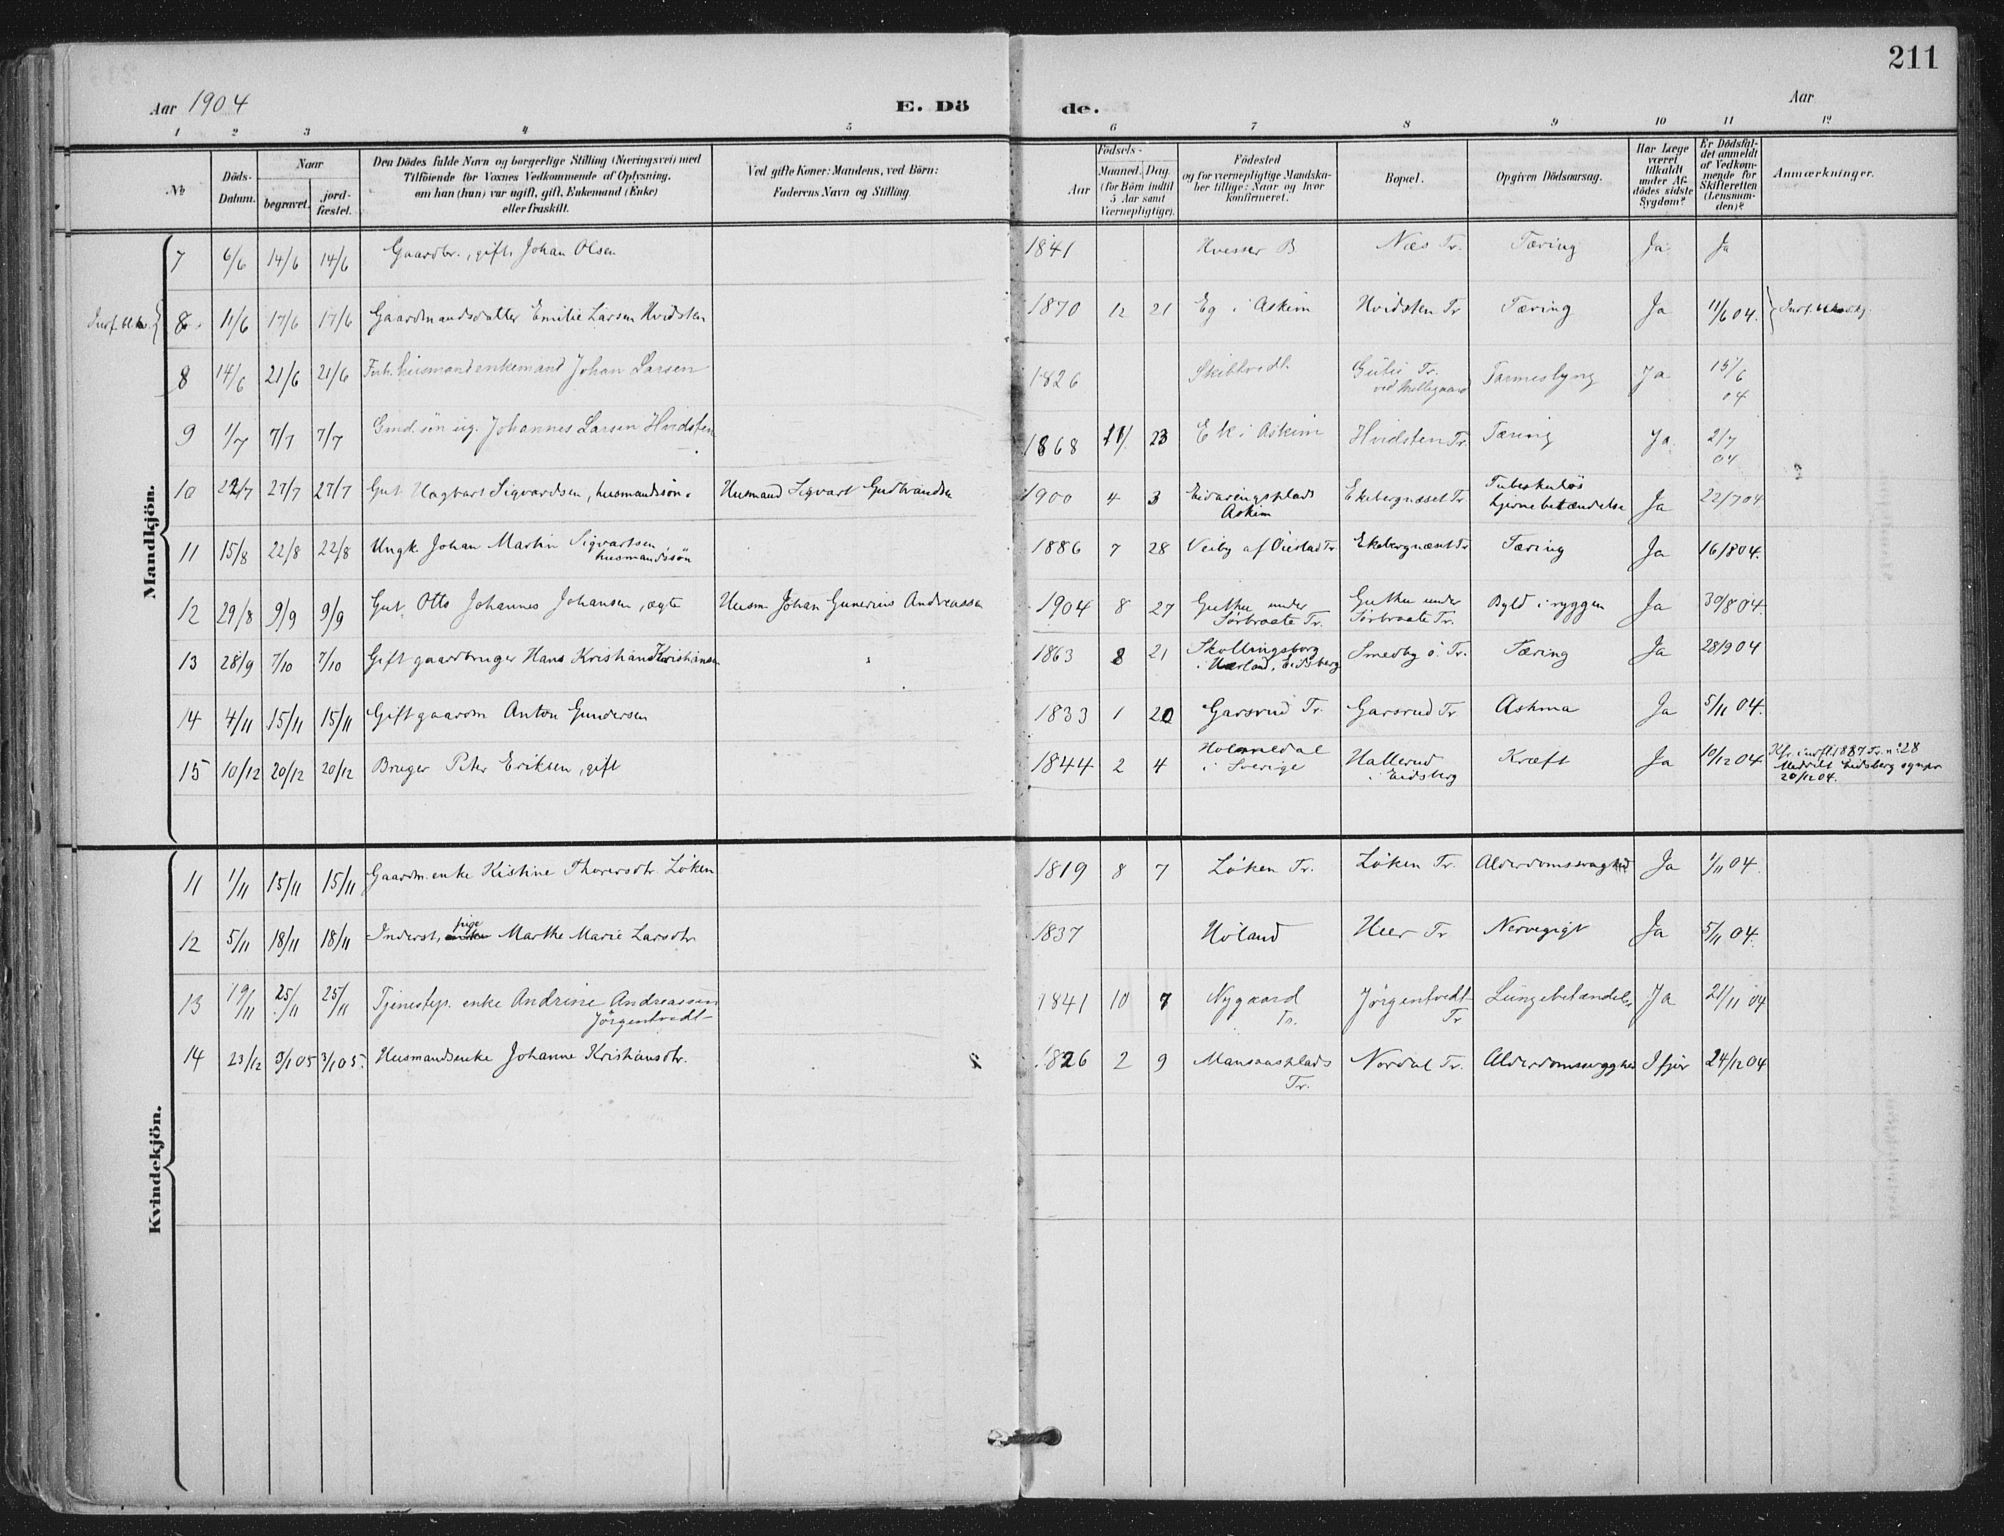 211
Aar 1904 E. Dö de. Aar
1 2 3 4 5 6 7 8 9 10 11 12
No
Döds-Datum.
Naar
begravet.
jord-fæstet.
Den Dödes fulde Navn og borgerlige Stilling (Næringsvei) med
Tilföiende for Voxnes Vedkommende af Oplysning.
om han (hun) var ugift, gift, Enkemand (Enke)
eller fraskilt.
Ved gifte Koner: Mandens, ved Börn:
Faderens Navn og Stilling.
Födsels-
Aar
Maaned. Dag.
(for Börn indtil
5 Aar samt
Værnepligtige).
Födested
og for værnepligtige Mandska-
ber tillige: Naar og hvor
konfirmeret.
Bopæl.
Opgiven Dödsaarsag.
Har Læge
været
tilkaldt
under Af-
dödes sidste
Sygdom?
Er Dödsfal-
det anmeldt
af Vedkom-
mende for
Skifteretten
(Lensman-
den)?
Anmærkninger.
Mandkjön.
7 6/6 14/6 14/6 Gaardbr., gift, Johan Olsen 1841 Hvesser B Næs Tr. Tæring Ja Ja
8 11/6 17/6 17/6 Gaardmandsdatter Emilie Larsen Hvidsten 1870 12 21 Eg i Askim Hvidsten Tr Tæring Ja 11/6 04.
8 14/6 21/6 21/6 husmand enkemand Johan Larsen 1826 Skibtvedt. Tr. Ja 15/6 04
9 1/7 7/7 7/7 Gmd.sön ug. Johannes Larsen Hvidsten 1868 11 23 Ek i Askim Hvidsten Tr. Tæring Ja 2/7 04
10 22/7 27/7 27/7 Gut Hagbart Sigvardsen, husmandssön. Husmand Sigvart Gudbrandsen 1900 4 3 Eidaringsplads
Askim Ekebergnæset Tr. Tuberkulös
hjernebetændelse Ja 22/7 04
11 15/8 22/8 22/8 Ungk. Johan Martin Sigvartsen
husmandssön 1886 7 28 Veiby af Öiestad Tr. Ekebergnæset Tr Tæring Ja 16/8 04.
12 29/8 9/9 9/9 Gut Otto Johannes Johansen, ægte Husm. Johan Gunerius Andreassen 1904 8 27 Guthu under
Sörbraate Tr. Guthu under
Sörbraate Tr. Byld i ryggen Ja 30/8 04.
13 28/9 7/10 7/10 Gift gaardbruger Hans Kristian Kristiansen 1863 8 21 Skollingsborg
i Hærland, Eidsberg Smedby ö. Tr. Tæring Ja 28/9 04
14 4/11 15/11 15/11 Gift gaardm Anton Gundersen 1833 1 20 Garsrud Tr. Garsrud Tr Asthma Ja 5/11 04.
15 10/12 20/12 20/12 Bruger Peter Eriksen, gift 1844 2 4 Holmedal
i Sverige Hallerud
i Eidsberg Kræft Ja 10/12 04 1887 Tr. n: 28
Meddelt Eidsberg sognepr
20/12 04.
Kvindekjön.
11 1/11 15/11 15/11 Gaardm.enke Kistine Thoresdtr. Löken 1819 8 7 Löken Tr. Löken Tr. Alderdomssvaghed Ja 1/11 04.
12 5/11 18/11 18/11 Inderst, pige Marthe Marie Larsdtr. 1837 Höland Heer Tr Nervegigt Ja 5/11 04.
13 19/11 25/11 25/11 Tjenestep. enke Andrine Andreassen
Jörgentvedt 1841 10 7 Nygaard
Tr. Jörgentvedt
Tr Lungebetændelse Ja 21/11 04
14 23/12 3/1 05 3/1 05. Husmandsenke Johanne Kristiansdtr. 1826 2 9 Mansaasplads
Tr. Nordal Tr. Alderdomssvaghed I fjor 24/12 04